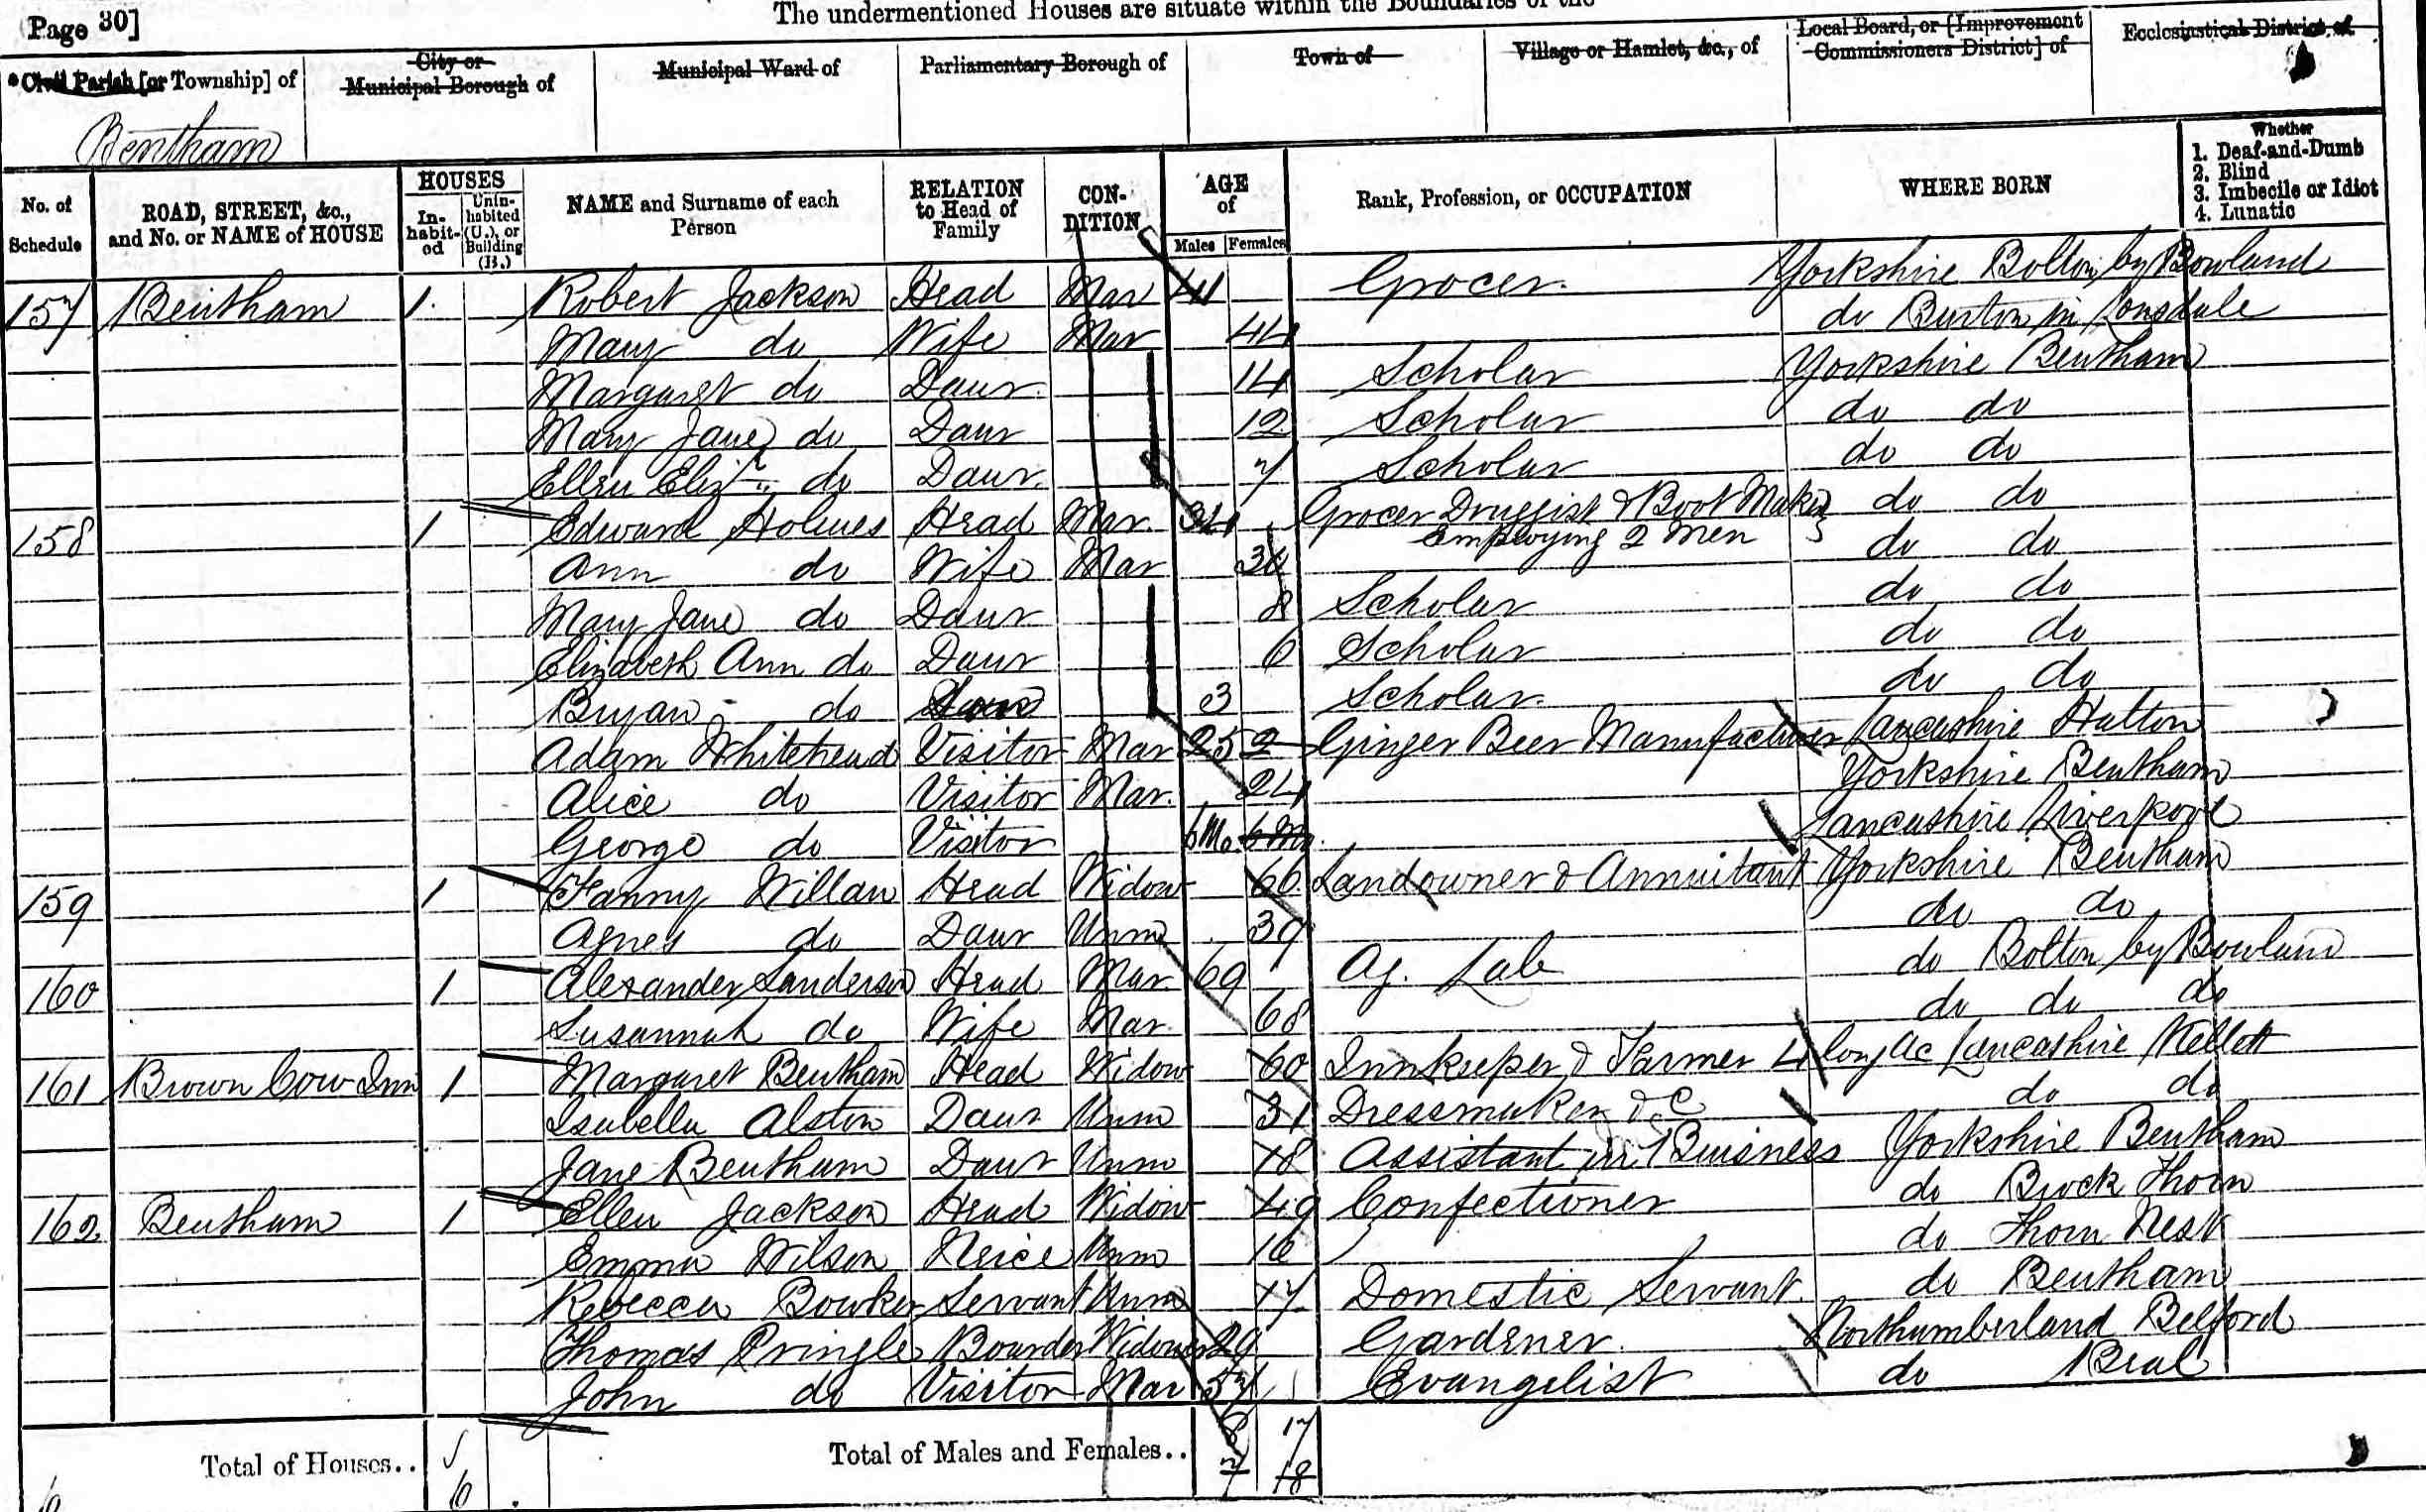 Page 30]
The undermentioned Houses are situate within the Boundaries of the
Civil Parish [or Township] of
City or Municipal Borough of
Municipal Ward of
Parliamentary Borough of
Town of
Village or Hamlet, &c., of
Local Board, or [Improvement Commissioners District] of
Ecclesiastical District of
Bentham
No. of Schedule
ROAD, STREET, &c., and No. or NAME of HOUSE
HOUSES
In-habit-ed
Unin-habited (U.), or Building (B.)
NAME and Surname of each Person
RELATION to Head of Family
CON-DITION
AGE of
Males
Females
Rank, Profession, or OCCUPATION
WHERE BORN
Whether
1. Deaf-and-Dumb
2. Blind
3. Imbecile or Idiot
4. Lunatic
157 Bentham 1 Robert Jackson Head Mar 41 Grocer. Yorkshire Bolton by Bowland
Mary do Wife Mar 44 do Burton in Lonsdale
Margaret do Daur. 14 Scholar Yorkshire Bentham
Mary Jane do Daur 12 Scholar do do
Ellen Elizth do Daur. 7 Scholar do do
158 1 Edward Holmes Head Mar. 34 Grocer Druggist & Boot Maker do do
Employing 2 Men
Ann do Wife Mar do do
Mary Jane do Daur 8 Scholar do do
Elizabeth Ann do Daur 6 Scholar do do
Bryan do 3 Scholar. do do
Adam Whitehead Visitor Mar 25 2 Ginger Beer Manufacturer Lancashire Hutton
Alice do Visitor Mar. 24 Yorkshire Bentham
George do Visitor 6Mo. 6Mo. Lancashire Liverpool
159 1 Fanny Willan Head Widow 66 Landowner & Annuitant Yorkshire Bentham
Agnes do Daur Unm 39 do do
160 1 Alexander Sanderson Head Mar 69 Ag. Lab do Bolton by Bowland
Susannah do Wife Mar. 68 do do do
161 Brown Cow Inn 1 Margaret Bentham Head Widow 60 Innkeeper & Farmer Lancashire Kellett
Isabella Alston Daur Unm 31 Dressmaker &c do do
Jane Bentham Daur Unm 18 Assistant in Buisness Yorkshire Bentham
162 Bentham 1 Ellen Jackson Head Widow 49 Confectioner do Brock Thorn
Emma Wilson Neice Unm 16 do Thorn Nest
Rebecca Bowker Servant Unm 17 Domestic Servant. do Bentham
Thomas Pringle Boarder Widower 29 Gardener. Northumberland Belford
John do Visitor Mar 57 Evangelist do Beal
Total of Houses.. 6
Total of Males and Females.. 8 17
7 18